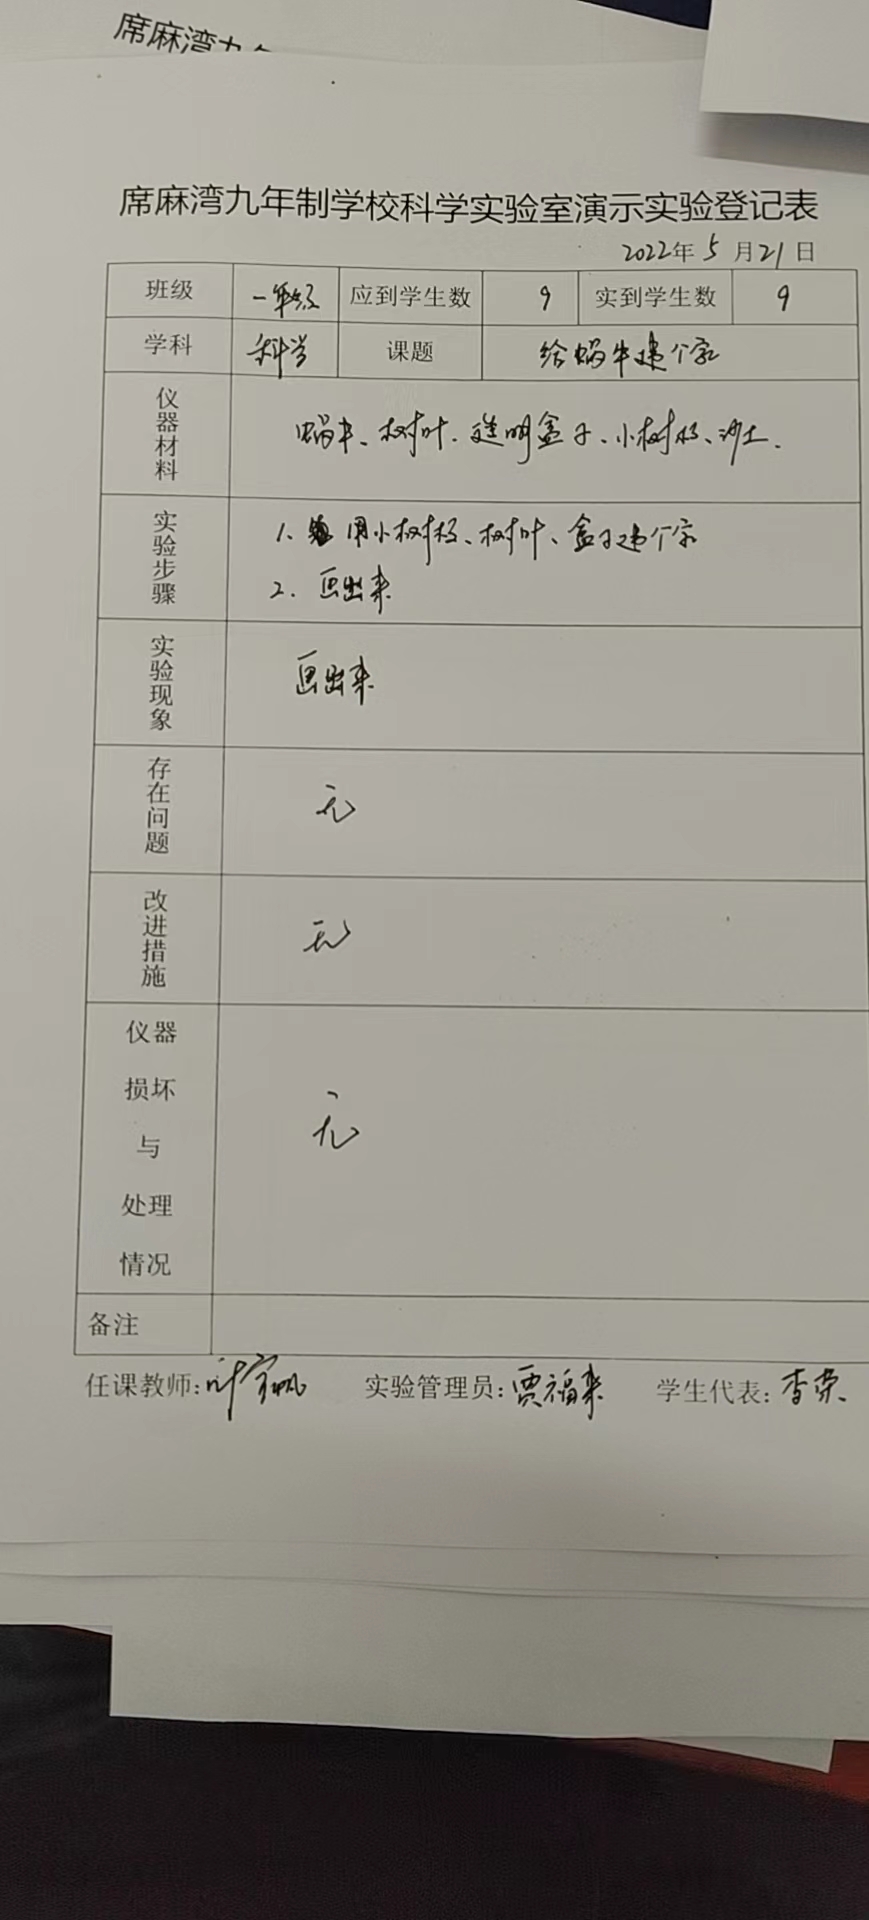 席麻湾九年
席麻湾九年制学校科学实验室演示实验登记表
2022年5月21日
班级 一年级 应到学生数 9 实到学生数 9
学科 科学 课题 给蜗牛建个家
仪器材料 蜗牛、树叶、透明盒子、小树枝、沙土.
实验步骤 1. 用小树枝、树叶、盒子建个家
2. 画出来
实验现象 画出来
存在问题 无
改进措施 无
仪器损坏与处理情况 无
备注
任课教师:叶 实验管理员:贾福来 学生代表:李荣